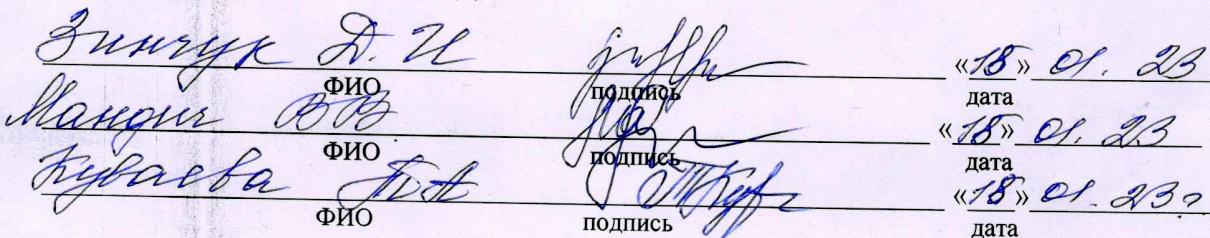 Зинчук Д. И «18» 01. 23
ФИО подпись дата
Мандич ВВ «18» 01. 23
ФИО подпись дата
Куваева ТА «18» 01. 23г
ФИО подпись дата